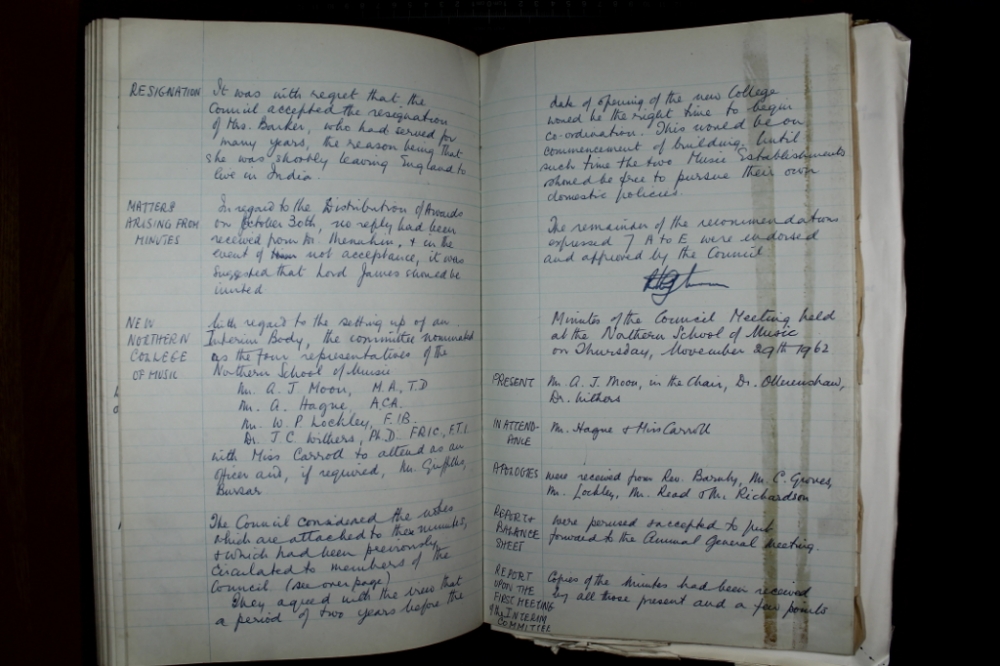 RESIGNATION It was with regret that the
Council accepted the resegnation
of Mrs. Barker, who had served for
many years, the reason being that
she was shortly leaving England to
live in India.
MATTERS In regard to the Distribution of Awards
ARISING FROM on October 30th, no reply had been
MINUTES received from Mr. Menuhin, & in the
event of not acceptance, it was
suggested that Lord James should be
invited
NEW With regard to the setting up of an
NORTHERN Interim Body, the committee nominated
COLLEGE as the four representatives of the
OF MUSIC Northern School of Music
Mr. A. J. Moon, M.A., T.D
Mr. A. Hague, A.C.A.
Mr. W. P. Lockley, F.I.B.
Dr. J. C. Withers, Ph.D. F.R.I.C., F.T.I.
with Miss Carroll to attend as an
officer and, if required, Mr. Griffiths,
Bursar
The Council considered the notes
which are attached to these minutes,
& which had been previously
circulated to members of the
Council (see over page)
They agreed with the view that
a period of two years before the
date of opening of the new College
would be the right time to begin
co-ordination. This would be on
commencement of building. Until
such time the two Music Establishments
should be free to pursue their own
domestic policies.
The remainder of the recommendations
expressed 7 A to E were endorsed
and approved by the Council
Minutes of the Council Meeting held
at the Northern School of Music
on Thursday, November 29th 1962
PRESENT Mr. A. J. Moon, in the Chair, Dr. Ollerenshaw,
Dr. Withers
IN ATTEND- Mr. Hague & Miss Carroll
ANCE
APOLOGIES were received from Rev. Barnby, Mr. C. Groves,
Mr. Lockley, Mr. Read & Mr. Richardson
REPORT & were perused & accepted to put
BALANCE forward to the Annual General Meeting.
SHEET
REPORT Copies of the minutes had been received
UPON THE by all those present and a few points
FIRST MEETING
of the INTERIM
COMMITTEE